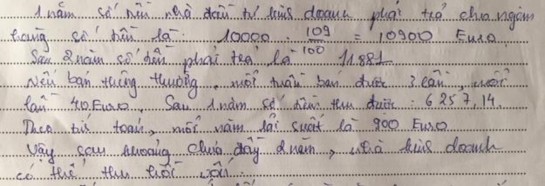 1 năm số tiền nhà đầu tư kinh doanh phải trả cho ngân
hàng số tiền là: 10000 . 109/100 = 10900 Euro.
Sau 2 năm số tiền phải trả là 11881
Nếu bán thông thường, mỗi tuần bán được 3 lần, mỗi
lần 40 Euro. Sau 1 năm số tiền thu được: 6257,14.
Theo tính toán, mỗi năm lãi suất là 900 Euro
Vậy sau khoảng chưa đầy 2 năm, nhà kinh doanh
có thể thu hồi vốn.